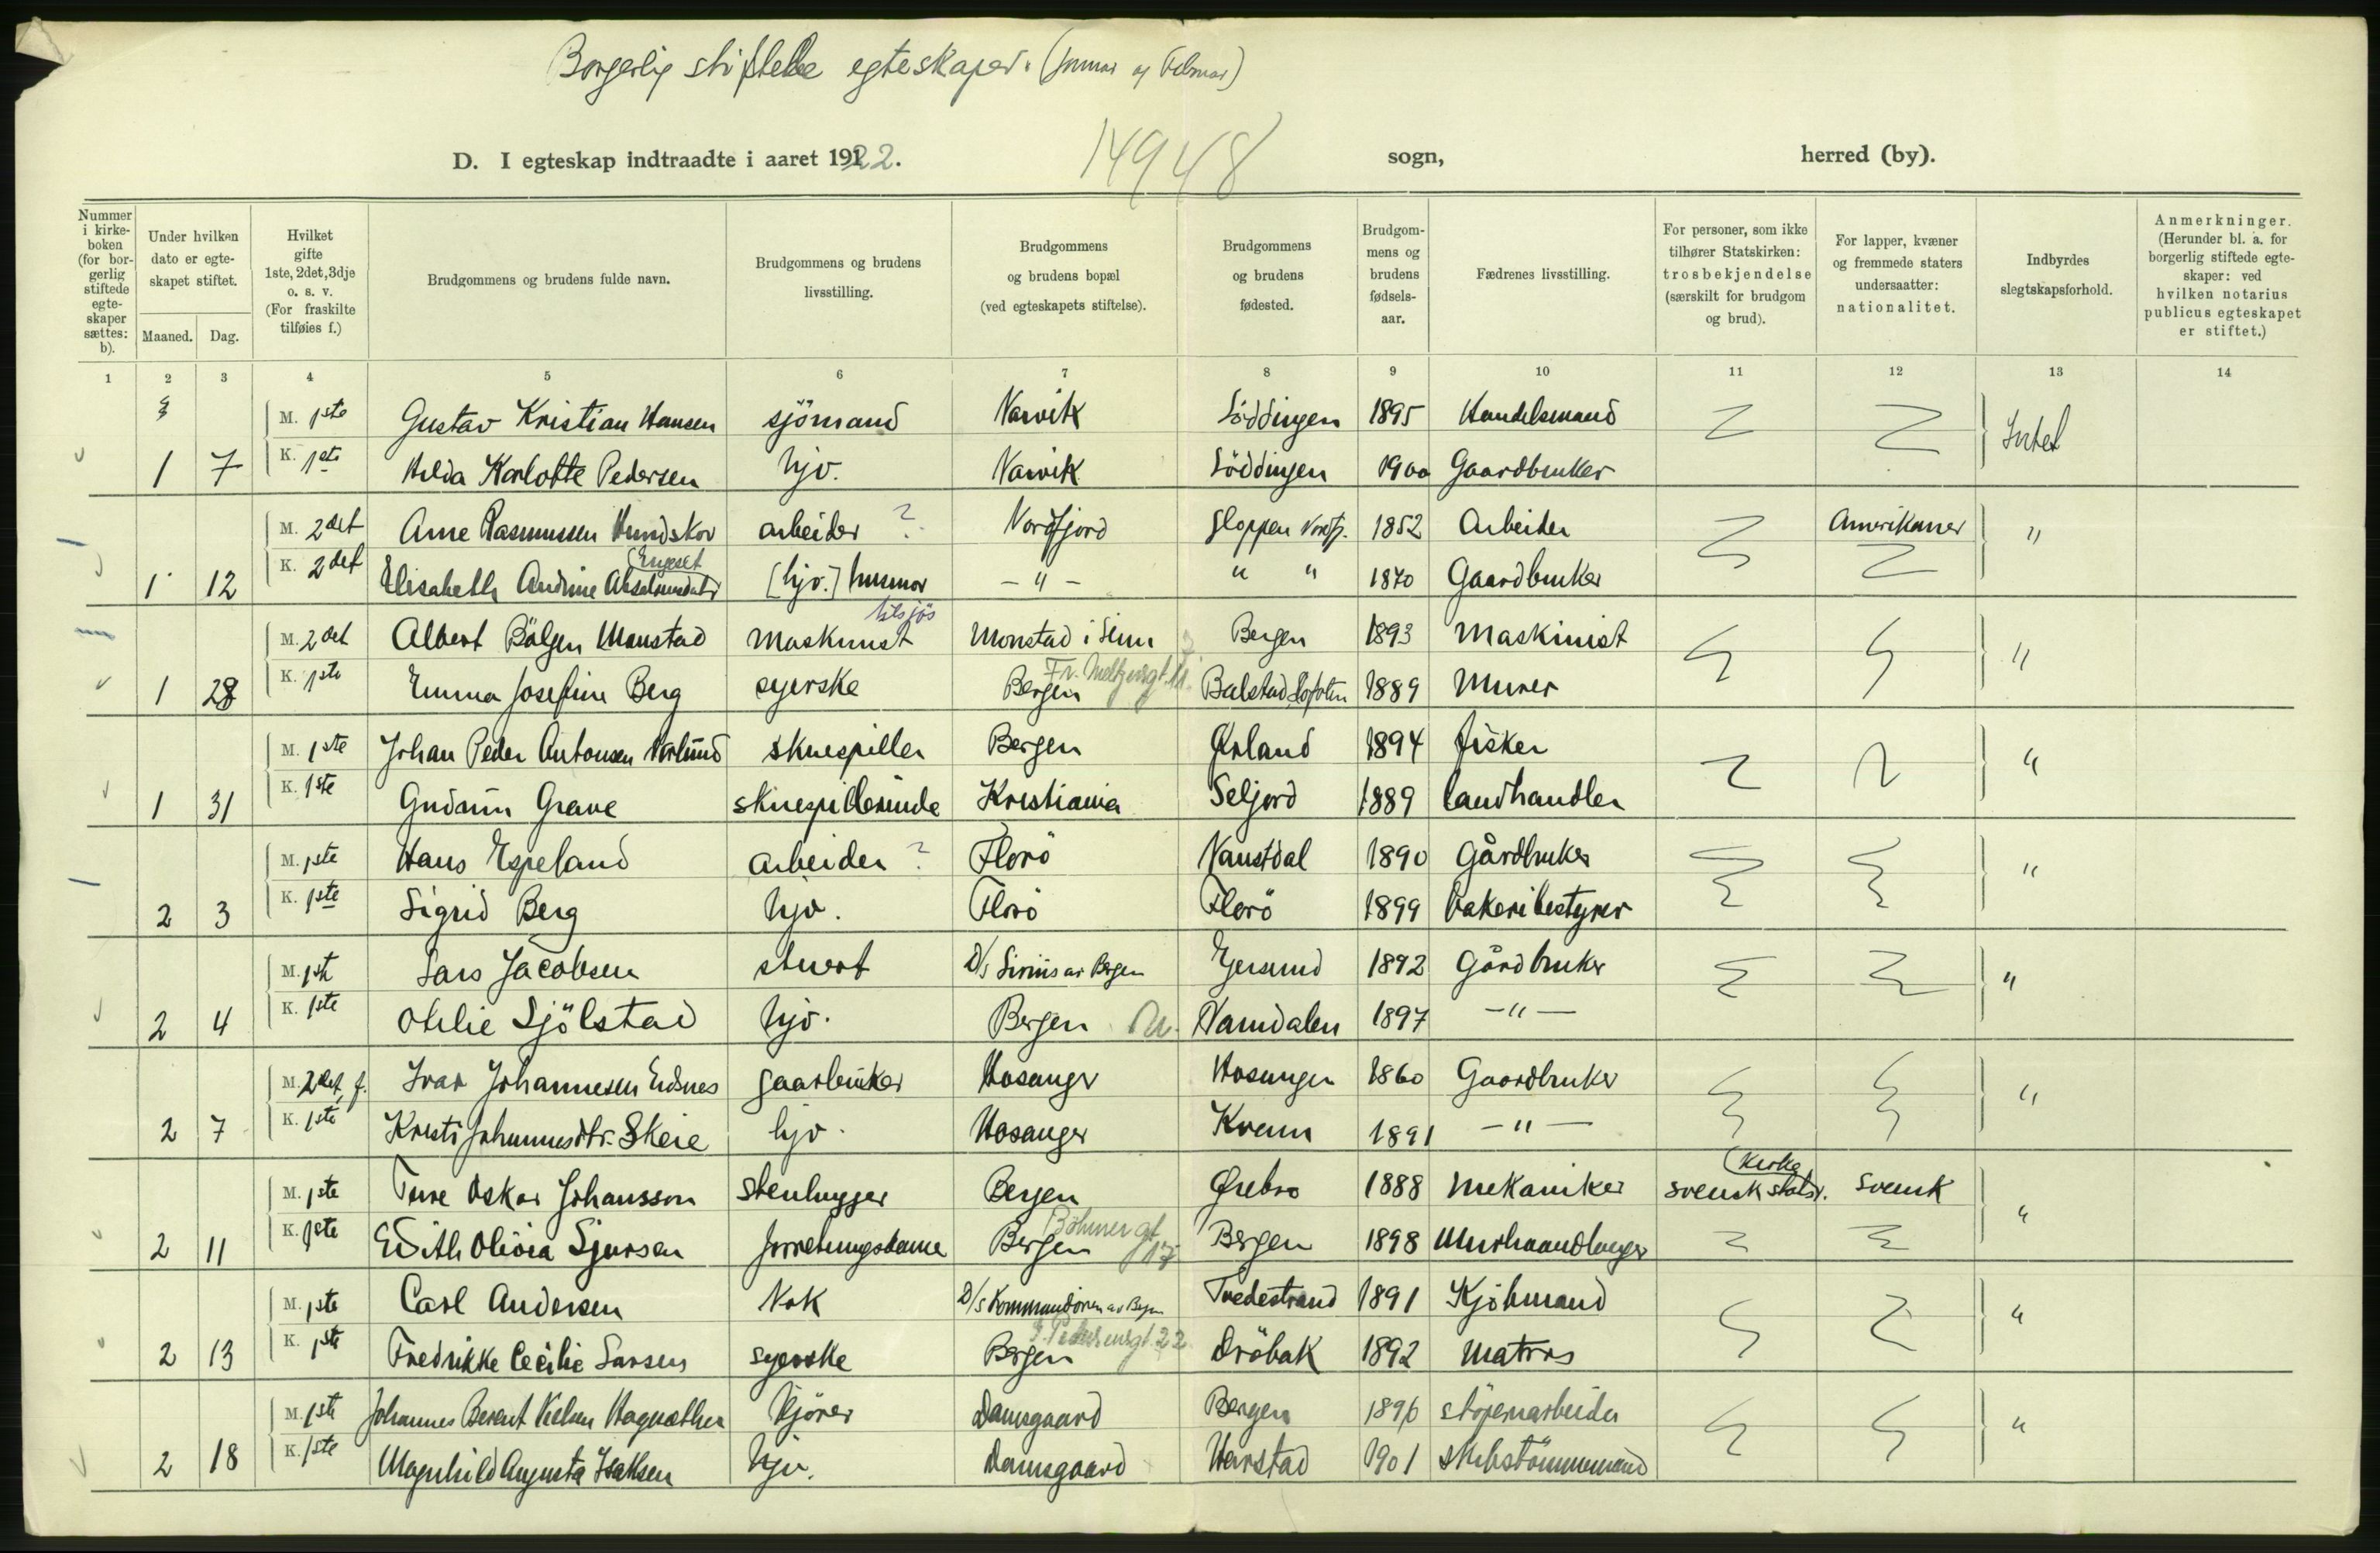 Borgerlig stiftede egteskaper. (Januar og Februar)
D. I egteskap indtraadte i aaret 1922. 14948 sogn, herred (by).
Nummer i kirkeboken (for borgerlig stiftede egteskaper sættes: b).
Under hvilken dato er egteskapet stiftet.
Maaned. Dag.
Hvilket gifte 1ste, 2det, 3dje o. s. v. (For fraskilte tilføies f.)
Brudgommens og brudens fulde navn.
Brudgommens og brudens livsstilling.
Brudgommens og brudens bopæl (ved egteskapets stiftelse).
Brudgommens og brudens fødested.
Brudgommens og brudens fødselsaar.
Fædrenes livsstilling.
For personer, som ikke tilhører Statskirken: trosbekjendelse (særskilt for brudgom og brud).
For lapper, kvæner og fremmede staters undersaatter: nationalitet.
Indbyrdes slegtskapsforhold.
Anmerkninger. (Herunder bl. a. for borgerlig stiftede egteskaper: ved hvilken notarius publicus egteskapet er stiftet.)
1 2 3 4 5 6 7 8 9 10 11 12 13 14
M. 1ste Gustav Kristian Hansen sjömand Narvik Löddingen 1895 Handelsmand Intet
1 7 K. 1ste Hilda Karlotte Pedersen hjv. Narvik Löddingen 1900 Gaardbruker
M. 2det Arne Rasmussen Hundskor arbeider ? Nordfjord Gloppen Nordfj. 1852 Arbeider Amerikaner "
Engeset
1 12 K. 2det Elisabeth Andrine Absalomsdatr [hjv.] husmor - " - " " 1870 Gaardbruker
utsjös
M. 2det Albert Bölgen Monstad Maskinist Monstad i Bergen 1893 Maskinist "
Fr. Meltzersgt. 11
1 28 K. 1ste Emma Josefine Berg syerske Bergen Balstad Lofoten 1889 Murer
M. 1ste Johan Peder Antonsen Norlund skuespiller Bergen Ørland 1894 fisker "
1 31 K. 1ste Gudrun Grave skuespillerinde Kristiania Seljord 1889 landhandler
M. 1ste Hans Espeland arbeider ? Florö Naustdal 1890 Gårdbruker "
2 3 K. 1ste Sigrid Berg hjv. Florö Florö 1899 bakeribestyrer
M. 1ste Lars Jacobsen stuert D/s Sirius av Bergen Egersund 1892 Gårdbruker "
2 4 K. 1ste Otelie Sjölstad hjv. Bergen Namdalen 1897 - " -
M. 2det f. Ivar Johannesen Eidsnes gaarbruker Hosanger Hosanger 1860 Gaardbruker "
2 7 K. 1ste Kristi Johannesdtr. Skeie hjv. Hosanger Kvam 1891 - " -
kirke
M. 1ste Ture Oskar Johansson stenhugger Bergen Ørebro 1888 mekaniker svensk stats. svensk "
Böhmergt 17
2 11 K. 1ste Edith Olivia Sjursen forretningsdame Bergen Bergen 1898 Murhaandlanger
M. 1ste Carl Andersen Kok D/s Kommandören av Bergen Tvedestrand 1891 Kjöbmand "
2 13 K. 1ste Fredrikke Cecilie Larsen syerske Bergen Dröbak 1892 Matros
M. 1ste Johannes Berent Nielsen Hagesæther kjörer Damsgaard Bergen 1896 störperiarbeider "
2 18 K. 1ste Magnhild Augusta Isaksen hjv. Damsgaard Harstad 1901 skibstömmermand